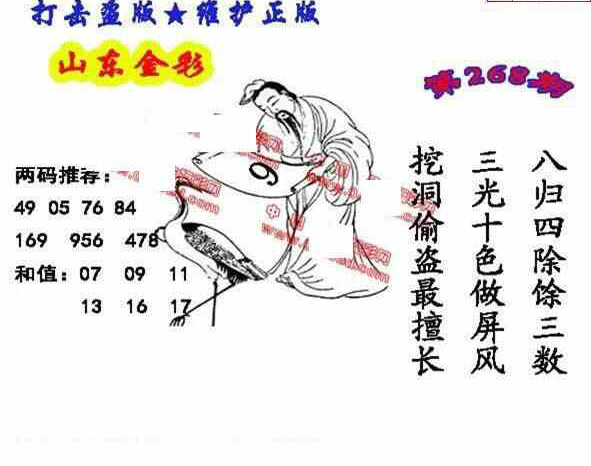 打击盗版★维护正版
山东金彩
第268期
两码推荐：
49 05 76 84
169 956 478
和值：07 09 11
13 16 17
9
八归四除馀三数
三光十色做屏风
挖洞偷盗最擅长